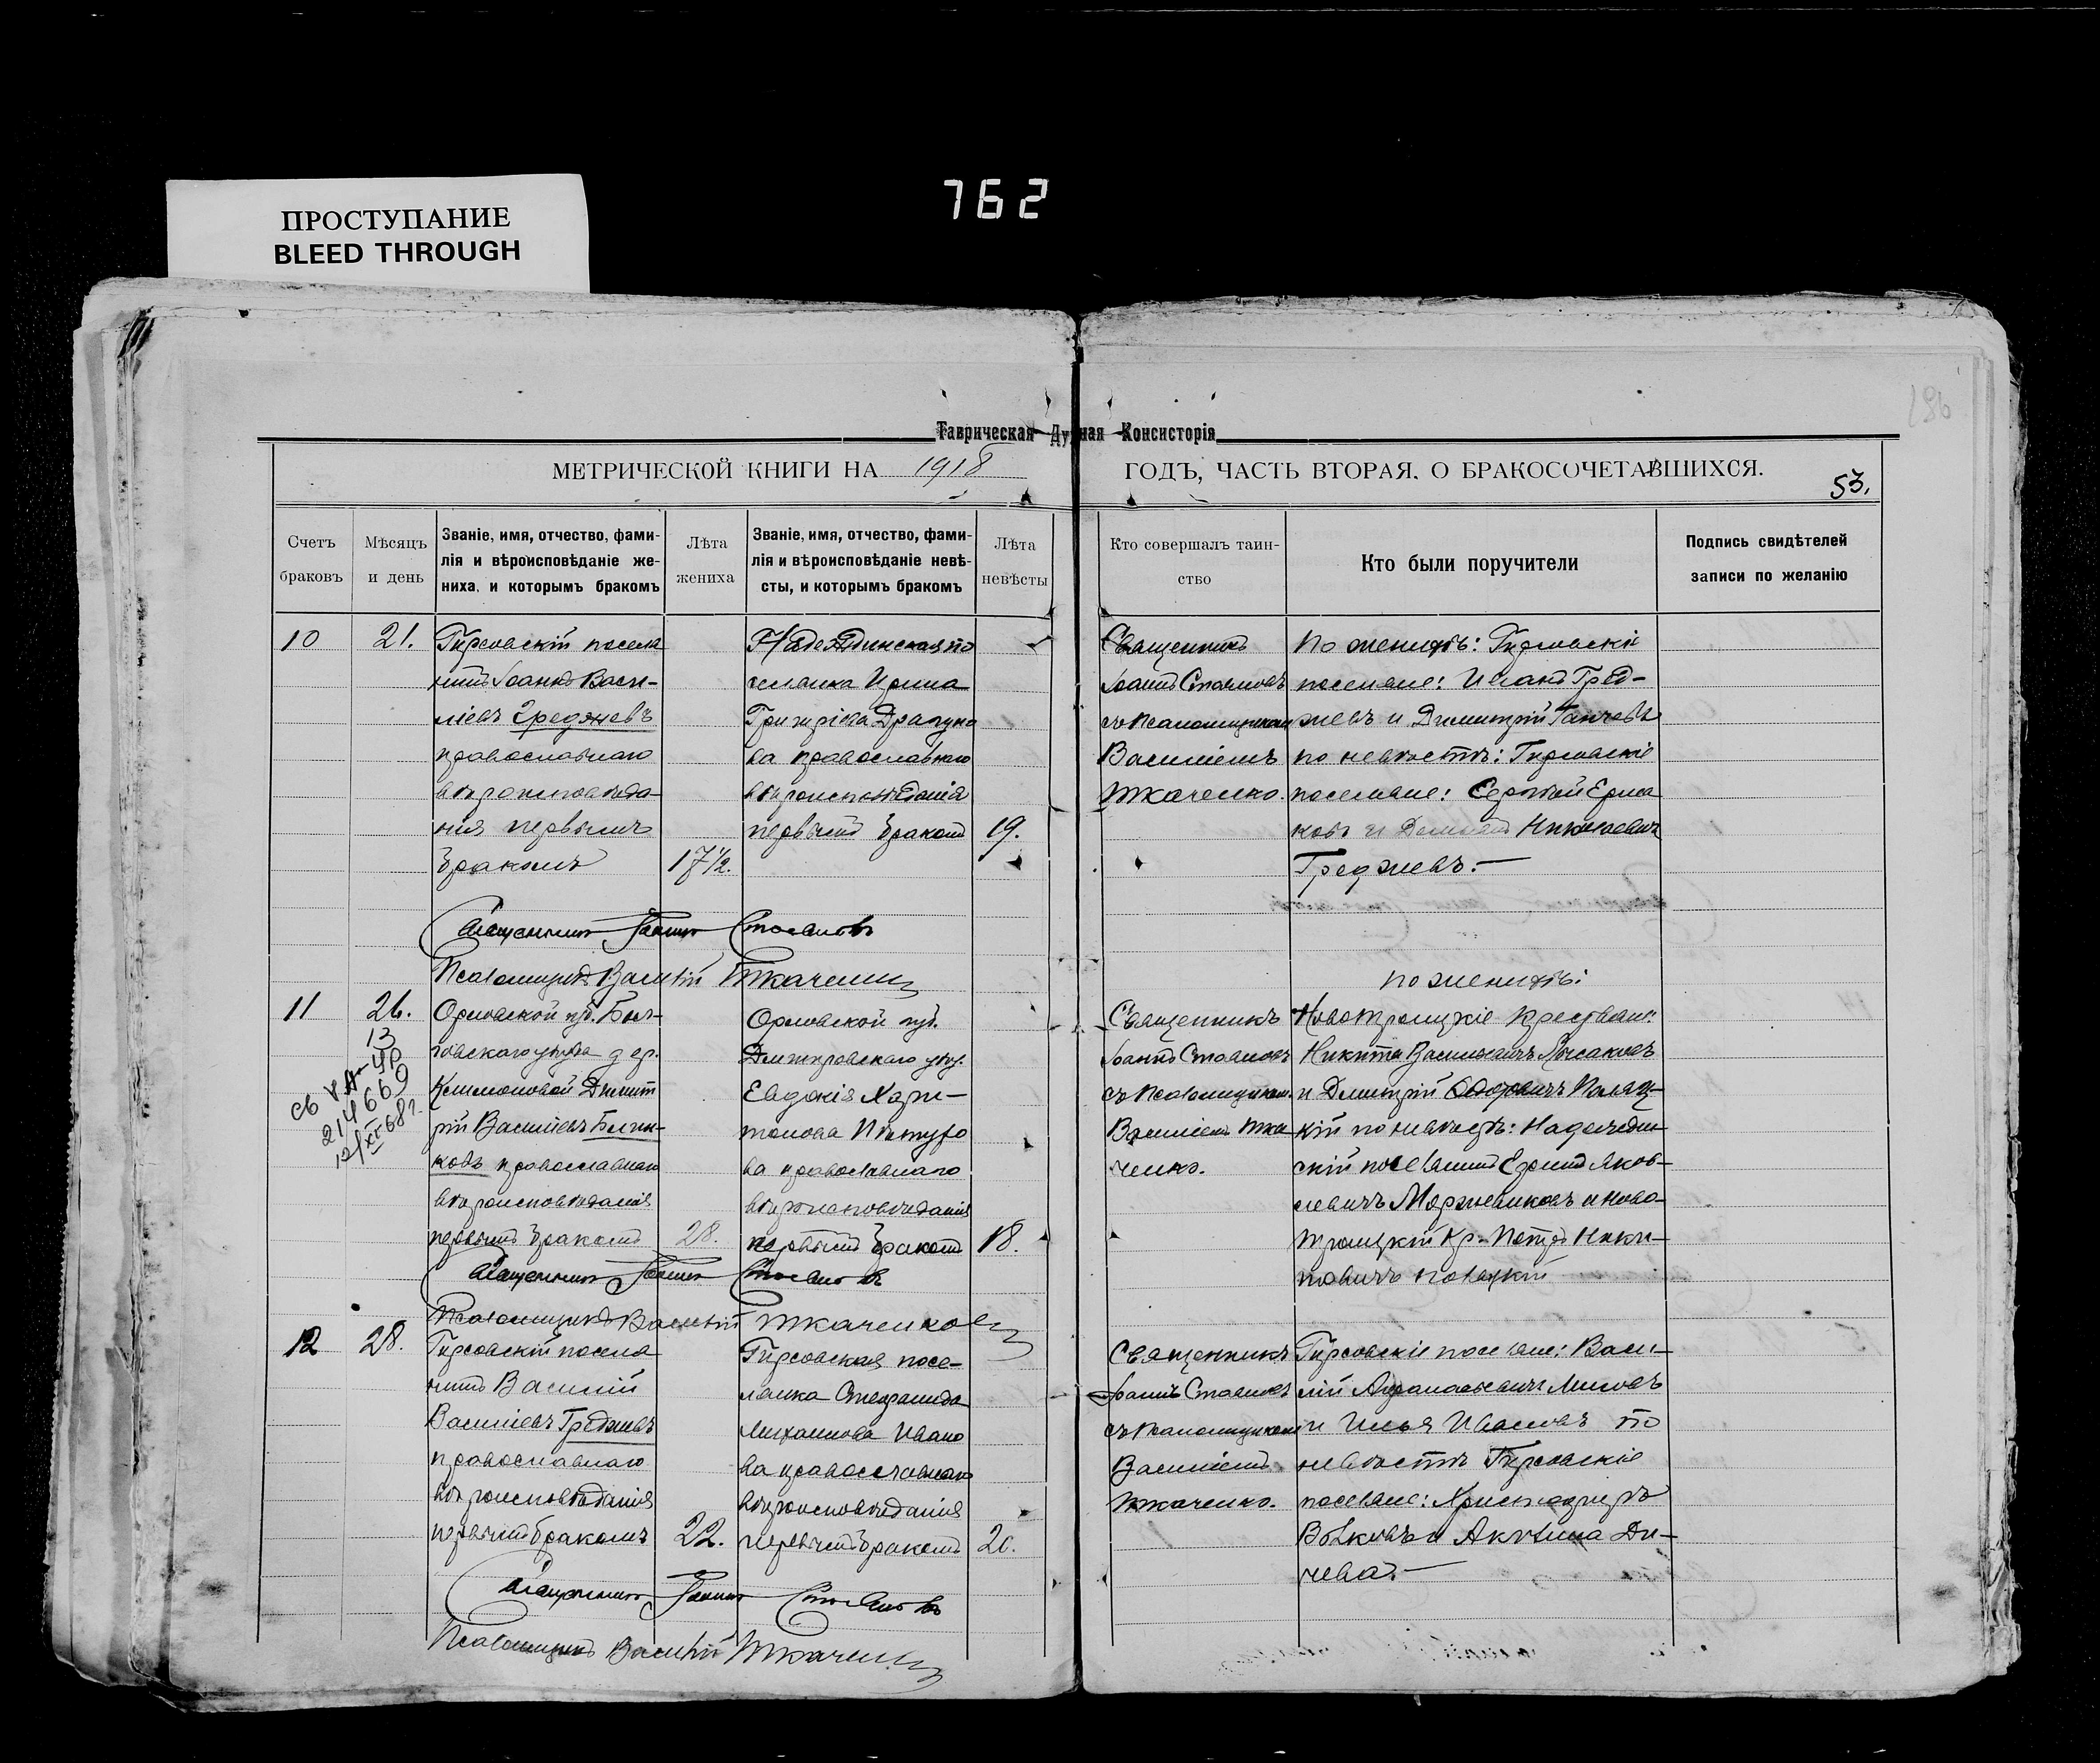 ПРОСТУПАНИЕ
BLEED THROUGH
762
Таврическая Духная Консисторія
МЕТРИЧЕСКОЙ КНИГИ НА 1918
ГОДЪ, ЧАСТЬ ВТОРАЯ, О БРАКОСОЧЕТАВШИХСЯ.
53.
Счетъ браковъ
Мѣсяцъ и день
Званіе, имя, отчество, фами-
лія и вѣроисповѣданіе же-
ниха, и которымъ бракомъ
Лѣта жениха
Званіе, имя, отчество, фами-
лія и вѣроисповѣданіе невѣ-
сты, и которымъ бракомъ
Лѣта невѣсты
Кто совершалъ таин-
ство
Кто были поручители
Подпись свидѣтелей
записи по желанію
10
21.
Гирсовскій поселя
нинъ Іоаннъ Васи-
ліевъ Греджевъ
православнаго
вѣроисповѣда
нія первымъ
бракомъ
17½.
Надеждинская по
селянка Ирина
Григоріева Драгуно
ва православнаго
вѣроисповѣданія
первымъ бракомъ
19.
Священникъ
Іоаннъ Стояновъ
съ псаломщикомъ
Василіемъ
Ткаченко.
По женихѣ: Гирсовскіе
поселяне: Иванъ Гред-
жевъ и Димитрій Ганчевъ
по невѣстѣ: Гирсовскіе
поселяне: Сергѣй Ерма
ковъ и Николаевичъ
Греджевъ.—
Священникъ Іоаннъ Стояновъ
Псаломщикъ Василій Ткаченко
11
26.
13
св V-АП-
214669
12/XI 68 г.
Орловской губ. Бол-
ховскаго уѣзда дер.
Климоновой Димит
рій Василіевъ Блин-
ковъ православнаго
вѣроисповѣданія
первымъ бракомъ
28.
Орловской губ.
Дмитровскаго уѣзд.
Евдокія Хари-
тонова
ва православнаго
вѣроисповѣданія
первымъ бракомъ
18.
Священникъ
Іоаннъ Стояновъ
съ псаломщиком.
Василіемъ Тка
ченко.
по женихѣ:
Новотроицкіе крестьяне:
Никита Васильевичъ Лысаковъ
и Дмитрій
кій по невѣстѣ: Надеждин
скій поселянинъ Яков-
левичъ и Ново-
троицкій Кр. Петръ Ники-
товичъ
Священникъ Іоаннъ Стояновъ
Псаломщикъ Василій Ткаченко
12
28.
Гирсовскій поселя
нинъ Василій
Василіевъ Греджевъ
православнаго
вѣроисповѣданія
первымъ бракомъ
22.
Гирсовская посе-
лянка Стефанида
Михаилова Ивано
ва православнаго
вѣроисповѣданія
первымъ бракомъ
20.
Священникъ
Іоаннъ Стояновъ
съ псаломщикомъ
Василіемъ
Ткаченко.
Гирсовскіе поселяне: Васи-
лій Афанасьевичъ Миновъ
и Илья Ивановъ по
невѣстѣ Гирсовскіе
поселяне: Христофоръ
Вълковъ и Акулина Ди-
чева.—
Священникъ Іоаннъ Стояновъ
Псаломщикъ Василій Ткаченко